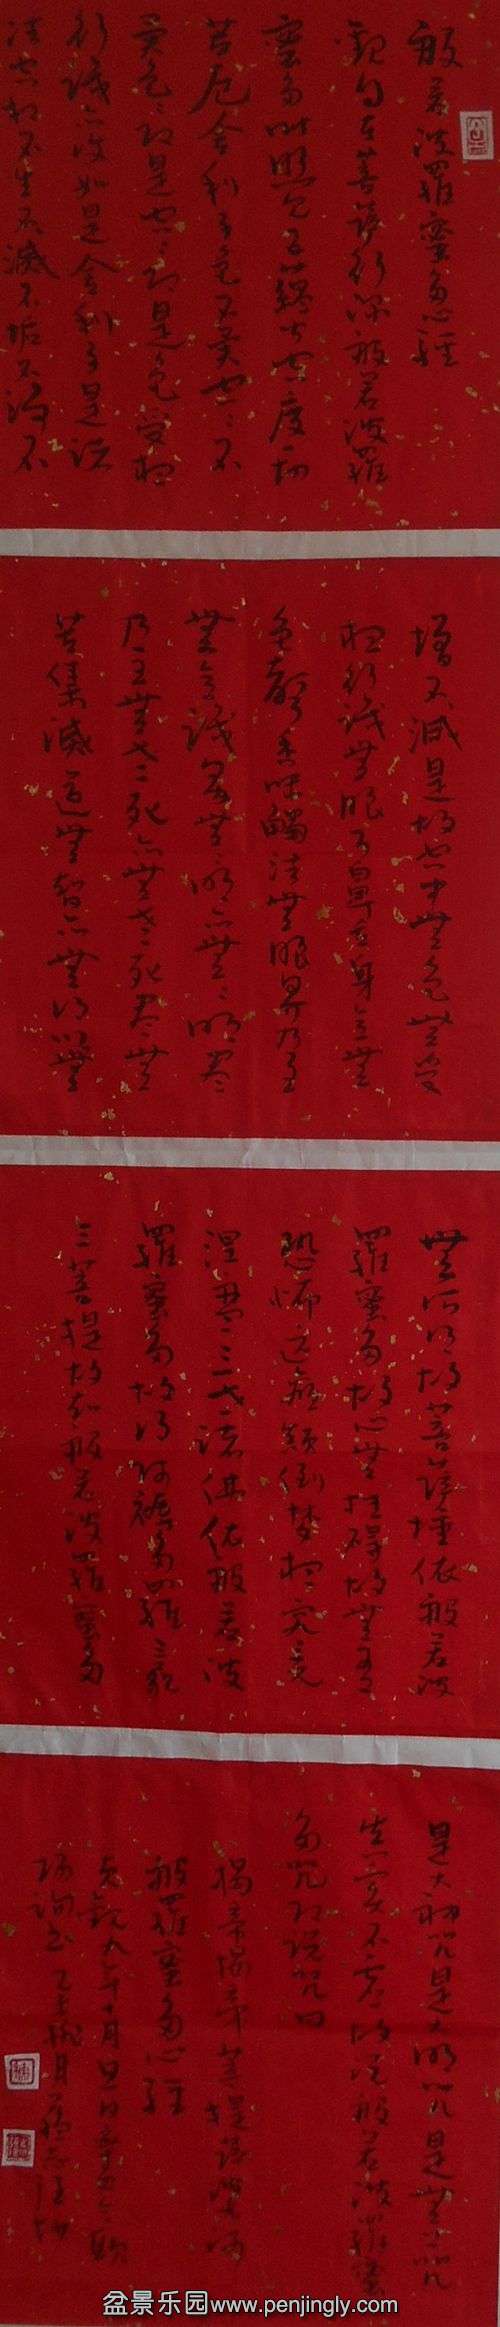 般若波羅蜜多心經
觀自在菩薩行深般若波羅
蜜多時照見五蘊皆空度一切
苦厄舍利子色不異空〻不
異色〻即是空〻即是色受想
行識亦復如是舍利子是諸
法空相不生不滅不垢不淨不
增不減是故空中無色無受
想行識無眼耳鼻舌身意無
色聲香味觸法無眼界乃至
無意識界無〻明亦無〻明盡
乃至無老死亦無老死盡無
苦集滅道無智亦無得以無
無所得故菩薩埵依般若波
羅蜜多故心無挂礙故無有
恐怖遠離顛倒夢想究竟
涅槃三世諸佛依般若波
羅蜜多故得阿耨多羅三藐
三菩提故知般若波羅蜜多
是大神咒是大明咒是無上咒
真實不虛故說般若波羅蜜
多咒即說咒曰
揭帝揭帝菩提薩婆訶
般羅蜜多心經
貞觀九年十月旦日率更令歐
陽詢書
盆景乐园www.penjingly.com